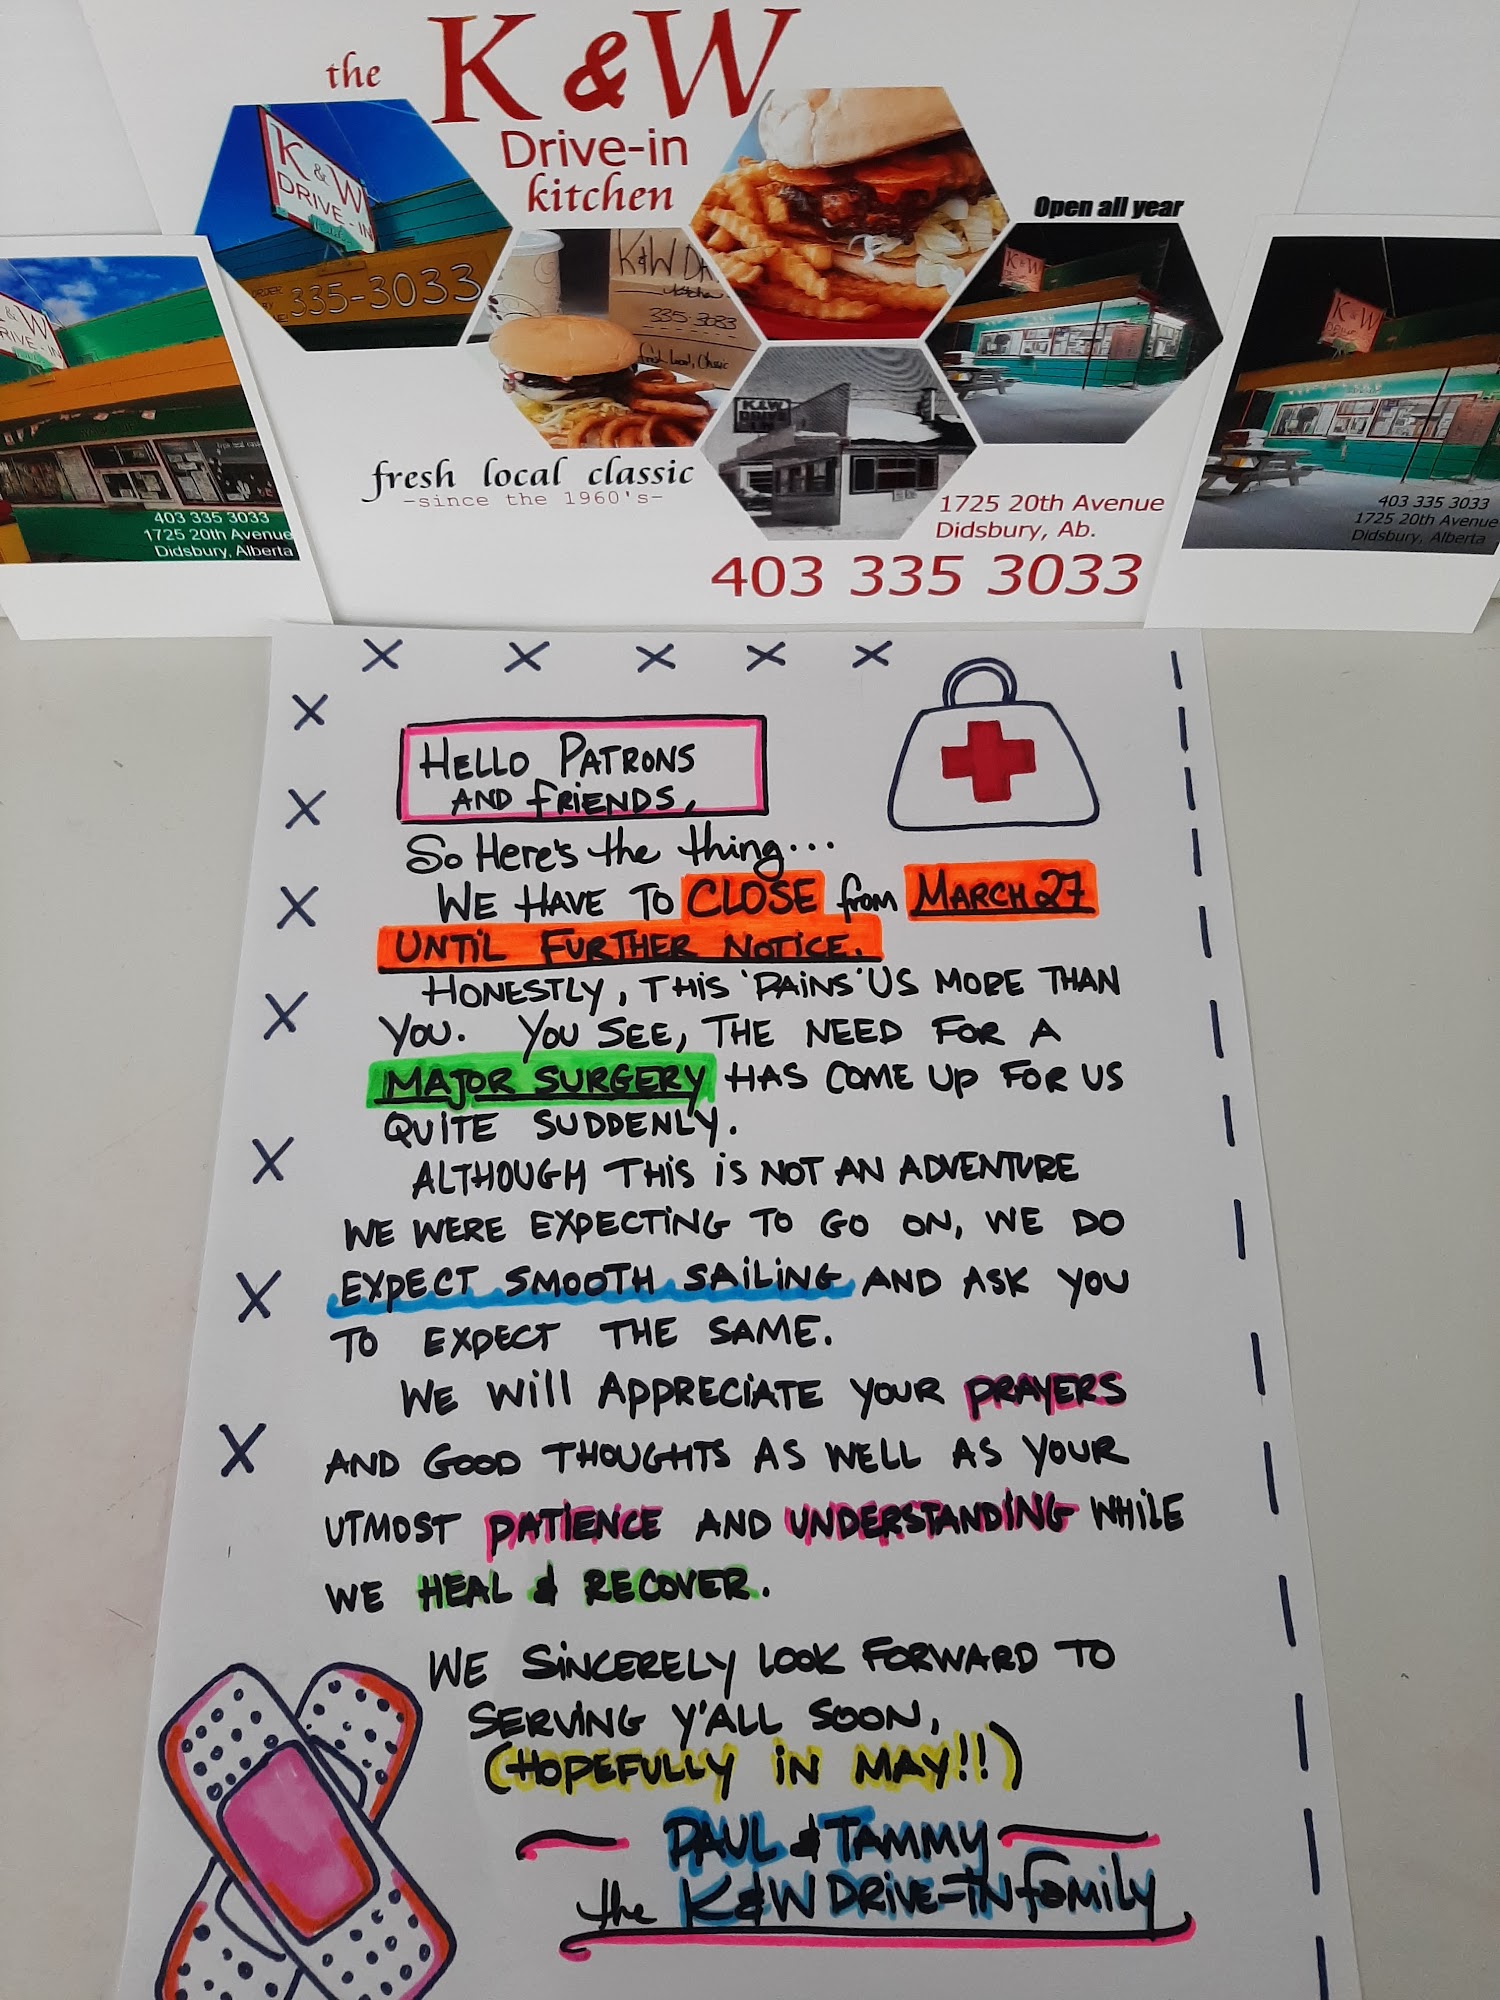 the K & W
Drive-in
kitchen
K & W
DRIVE-IN
335-3033
K&W
335-3033
Open all year
K & W
K&W
DRIVE
IN
fresh local classic
-since the 1960's-
1725 20th Avenue
Didsbury, Ab.
403 335 3033
W
RIVE-IN
403 335 3033
1725 20th Avenue
Didsbury, Alberta
K&W
403 335 3033
1725 20th Avenue
Didsbury, Alberta
HELLO PATRONS
AND FRIENDS,
So HERE'S the thing...
WE HAVE TO CLOSE from MARCH 27
UNTIL FURTHER NOTICE.
HONESTLY, THIS 'PAINS' US MORE THAN
YOU. YOU SEE, THE NEED FOR A
MAJOR SURGERY HAS COME UP FOR US
QUITE SUDDENLY.
ALTHOUGH THIS IS NOT AN ADVENTURE
WE WERE EXPECTING TO GO ON, WE DO
EXPECT SMOOTH SAILING AND ASK YOU
TO EXPECT THE SAME.
WE WILL APPRECIATE YOUR PRAYERS
AND GOOD THOUGHTS AS WELL AS YOUR
UTMOST PATIENCE AND UNDERSTANDING WHILE
WE HEAL & RECOVER.
WE SINCERELY LOOK FORWARD TO
SERVING Y'ALL SOON,
(HOPEFULLY IN MAY!!)
PAUL & TAMMY
the K&W DRIVE-IN family